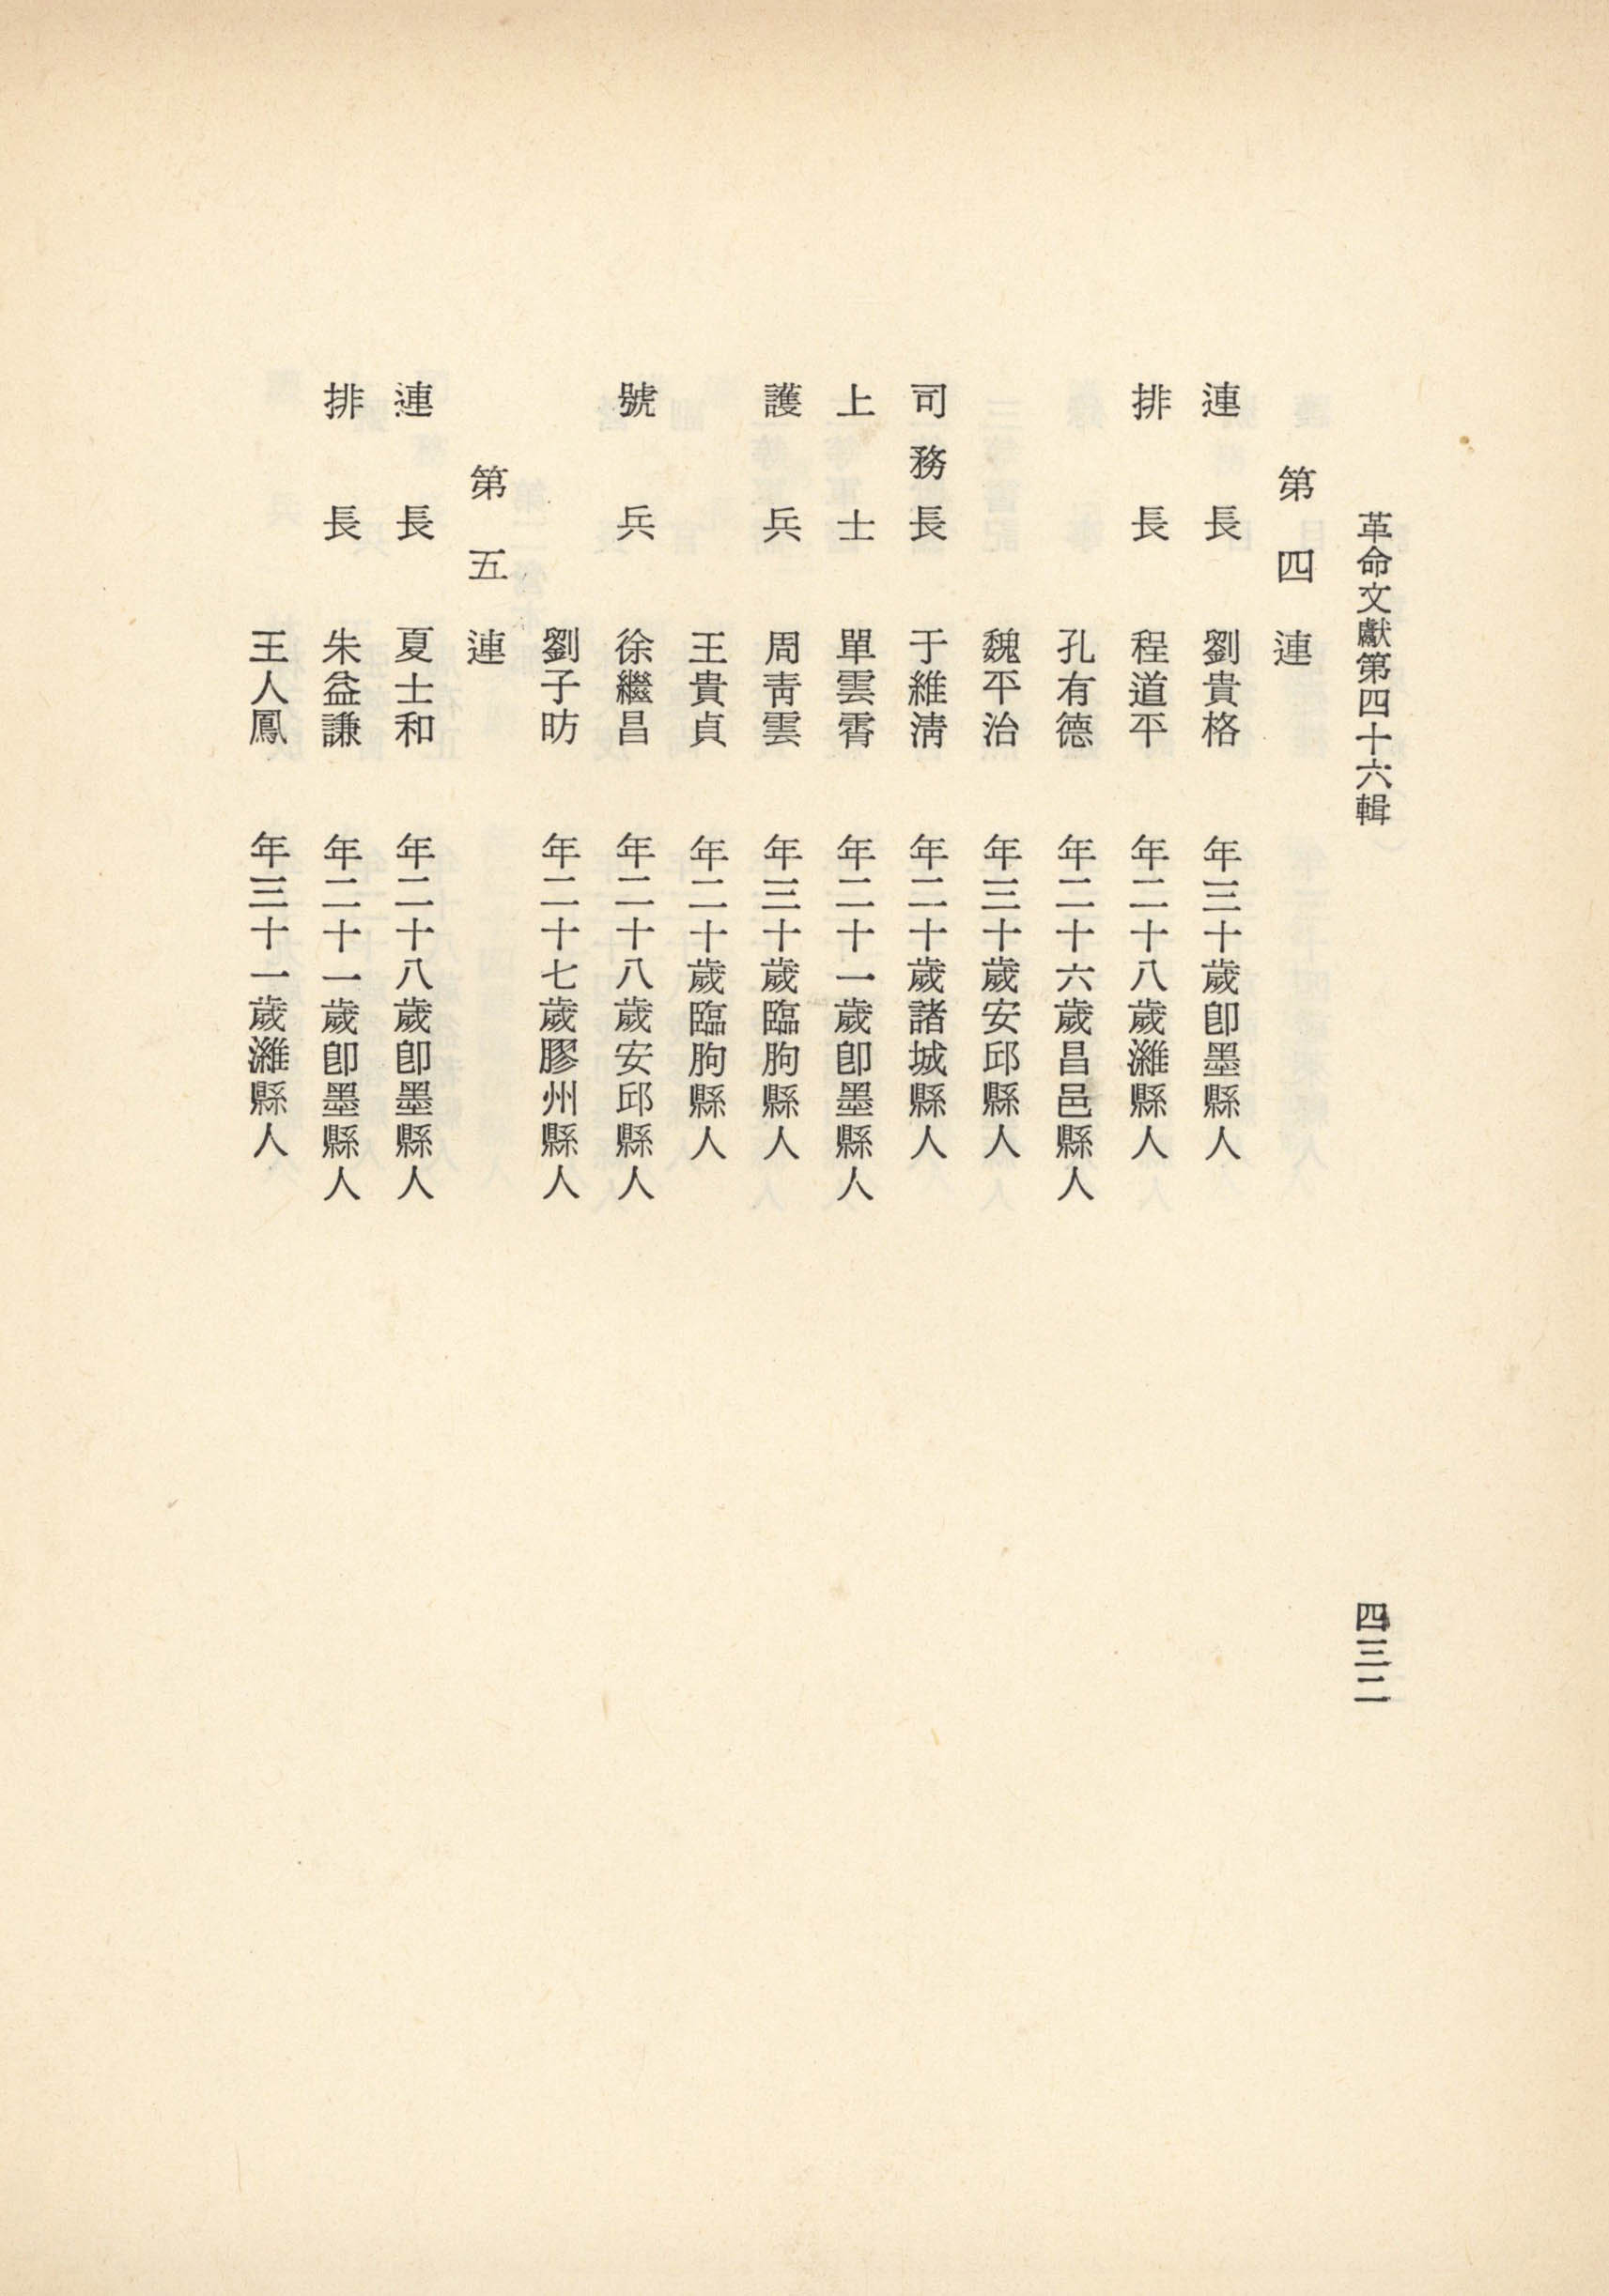 革命文獻第四十六輯
四三二
第四連
連長 劉貴格 年三十歲卽墨縣人
排長 程道平 年二十八歲濰縣人
孔有德 年二十六歲昌邑縣人
魏平治 年三十歲安邱縣人
司務長 于維淸 年二十歲諸城縣人
上士 單雲霄 年二十一歲卽墨縣人
護兵 周靑雲 年三十歲臨朐縣人
王貴貞 年二十歲臨朐縣人
號兵 徐繼昌 年二十八歲安邱縣人
劉子昉 年二十七歲膠州縣人
第五連
連長 夏士和 年二十八歲卽墨縣人
排長 朱益謙 年二十一歲卽墨縣人
王人鳳 年三十一歲濰縣人